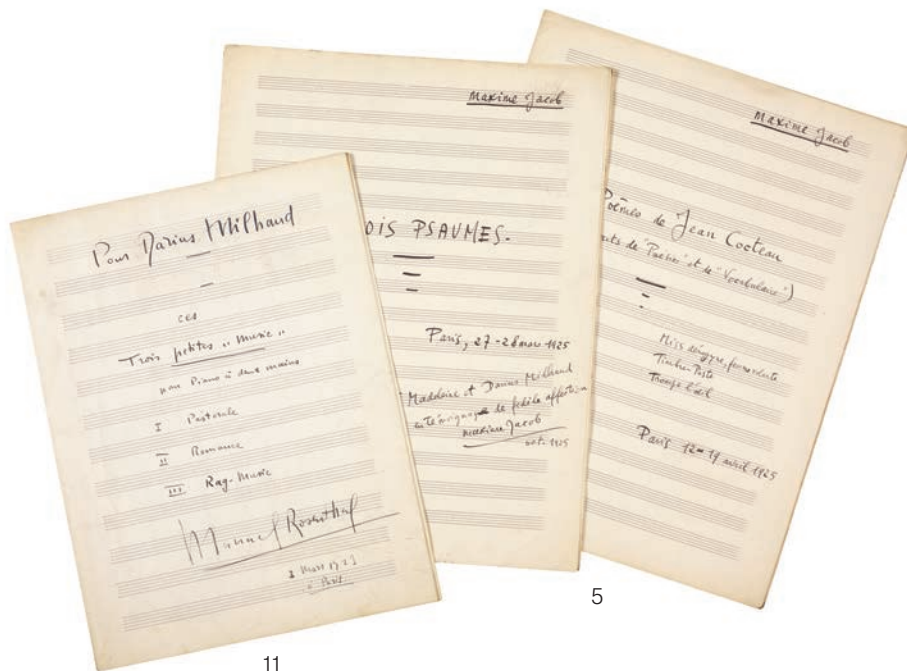 Pour Darius Milhaud
ces
Trois petites "Music"
pour Piano à deux mains
I Pastorale
II Romance
III Rag-Music
Manuel Rosenthal
à Paris
11
Maxime Jacob
OIS PSAUMES.
Paris, 27-28 mars 1925
Madeleine et Darius Milhaud
en témoignage de fidèle affection
maxime Jacob
oct. 1925
Maxime Jacob
Poèmes de Jean Cocteau
de "Poésies" et de "Vocabulaire")
Miss
Timbre-Poste
Trompe l'oeil
Paris 12-19 avril 1925
5